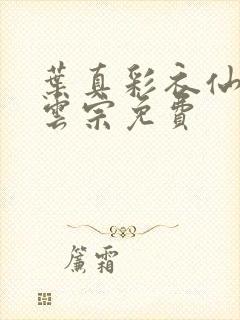 葉真彩衣仙
雲宗免費
簾霜